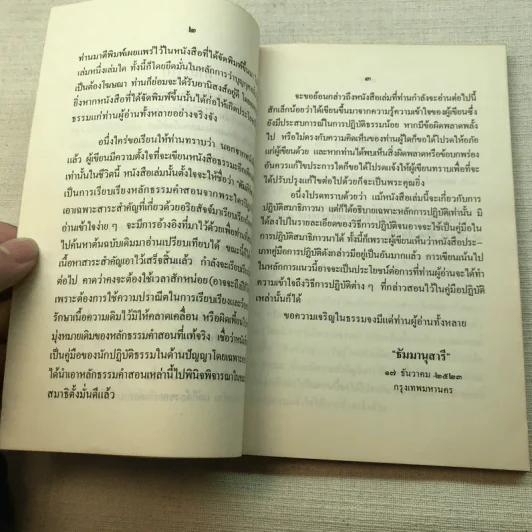 ๒
ท่านมาตีพิมพ์เผยแพร่ไว้ในหนังสือที่ได้จัดพิมพ์ขึ้น
เล่มหนึ่งเล่มใด ทั้งนี้ก็โดยยึดมั่นในหลักการว่า
เป็นต้องโฆษณา ท่านก็ย่อมจะได้รับอานิสงส์อยู่ดี
ยิ่งหากหนังสือที่ได้จัดพิมพ์ขึ้นนั้นได้ก่อให้เกิด
ธรรมแก่ท่านผู้อ่านทั้งหลายอย่างจริงจัง
อนึ่งใคร่ขอเรียนให้ท่านทราบว่า นอกจาก
แล้ว ผู้เขียนมีความตั้งใจที่จะเขียนหนังสือธรรมะอีก
เท่านั้นในชีวิตนี้ หนังสือเล่มนั้นตั้งใจจะให้ชื่อว่า
เป็นการเรียบเรียงหลักธรรมคำสอนจากพระไตรปิฎก
เอาเฉพาะสาระสำคัญที่เกี่ยวด้วยอริยสัจจ์มาเรียบเรียง
อ่านเข้าใจง่าย ๆ จะมีการอ้างอิงที่มาไว้ด้วยเพื่อท่าน
ไปค้นหาต้นฉบับเดิมมาอ่านเปรียบเทียบได้ ขณะนี้
เนื้อหาสาระสำคัญเอาไว้เสร็จสิ้นแล้ว กำลังจะเริ่ม
ต่อไป คาดว่าคงจะต้องใช้เวลาสักหน่อย (อาจจะถึง
เพราะต้องการใช้ความปราณีตในการเรียบเรียงและ
รักษาเนื้อความเดิมไว้มิให้คลาดเคลื่อน หรือผิดเพี้ยน
มุ่งหมายเดิมของหลักธรรมคำสอนที่แท้จริง เชื่อว่า
เป็นคู่มือของนักปฏิบัติธรรมในด้านปัญญาโดยเฉพาะ
ได้นำเอาหลักธรรมคำสอนเหล่านี้ไปพินิจพิจารณาใน
สมาธิตั้งมั่นดีแล้ว
๓
จะขอย้อนกล่าวถึงหนังสือเล่มที่ท่านกำลังจะอ่านต่อไปนี้
สักเล็กน้อยว่าได้เขียนขึ้นมาจากความรู้ความเข้าใจของผู้เขียนซึ่ง
ยังมีประสบการณ์ในการปฏิบัติธรรมน้อย หากมีข้อผิดพลาดพลั้ง
ไป หรือไม่ตรงกับความคิดเห็นของท่านผู้ใดก็ขอได้โปรดให้อภัย
แก่ผู้เขียนด้วย และหากท่านได้พบเห็นสิ่งผิดพลาดหรือข้อบกพร่อง
อันควรแก้ไขประการใดก็ขอได้โปรดแจ้งให้ผู้เขียนทราบเพื่อที่จะ
ได้ปรับปรุงแก้ไขต่อไปด้วยก็จะเป็นพระคุณยิ่ง
อนึ่งโปรดทราบด้วยว่า แม้หนังสือเล่มนี้จะเกี่ยวกับการ
ปฏิบัติสมาธิภาวนา แต่ก็ได้อธิบายเฉพาะหลักการปฏิบัติเท่านั้น มิ
ได้ลงไปในรายละเอียดของวิธีการปฏิบัติจนอาจจะใช้เป็นคู่มือใน
การปฏิบัติสมาธิภาวนาได้ ทั้งนี้ก็เพราะผู้เขียนเห็นว่าหนังสือประ-
เภทคู่มือการปฏิบัติดังกล่าวมีอยู่เป็นอันมากแล้ว การเขียนเน้นไป
ในหลักการแนวนี้อาจจะเป็นประโยชน์ต่อการที่ท่านผู้อ่านจะได้ทำ
ความเข้าใจถึงวิธีการปฏิบัติต่าง ๆ ที่กล่าวสอนไว้ในคู่มือปฏิบัติ
เหล่านั้นก็ได้
ขอความเจริญในธรรมจงมีแด่ท่านผู้อ่านทั้งหลาย
"ธัมมานุสารี"
๑๗ ธันวาคม ๒๕๒๓
กรุงเทพมหานคร